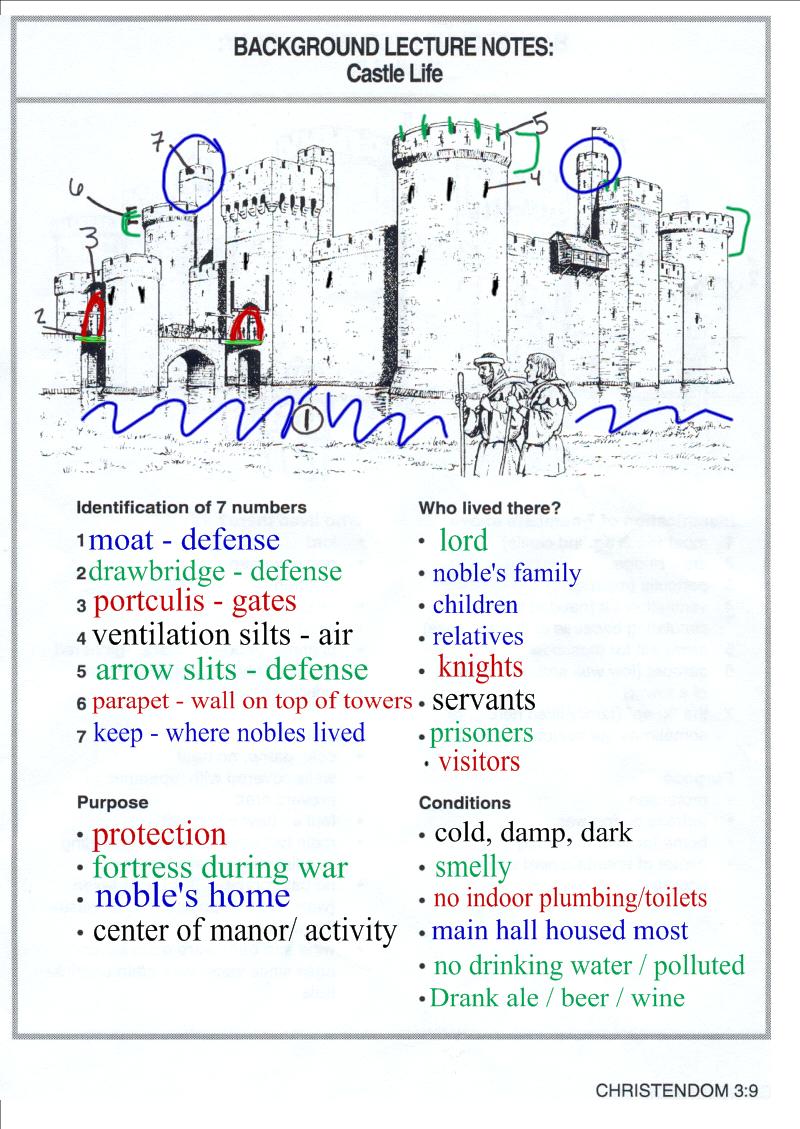 BACKGROUND LECTURE NOTES:
Castle Life
7
5
6
4
3
2
1
Identification of 7 numbers
1 moat - defense
2 drawbridge - defense
3 portculis - gates
4 ventilation silts - air
5 arrow slits - defense
6 parapet - wall on top of towers
7 keep - where nobles lived
Who lived there?
• lord
• noble's family
• children
• relatives
• knights
• servants
• prisoners
• visitors
Purpose
• protection
• fortress during war
• noble's home
• center of manor/ activity
Conditions
• cold, damp, dark
• smelly
• no indoor plumbing/toilets
• main hall housed most
• no drinking water / polluted
• Drank ale / beer / wine
CHRISTENDOM 3:9